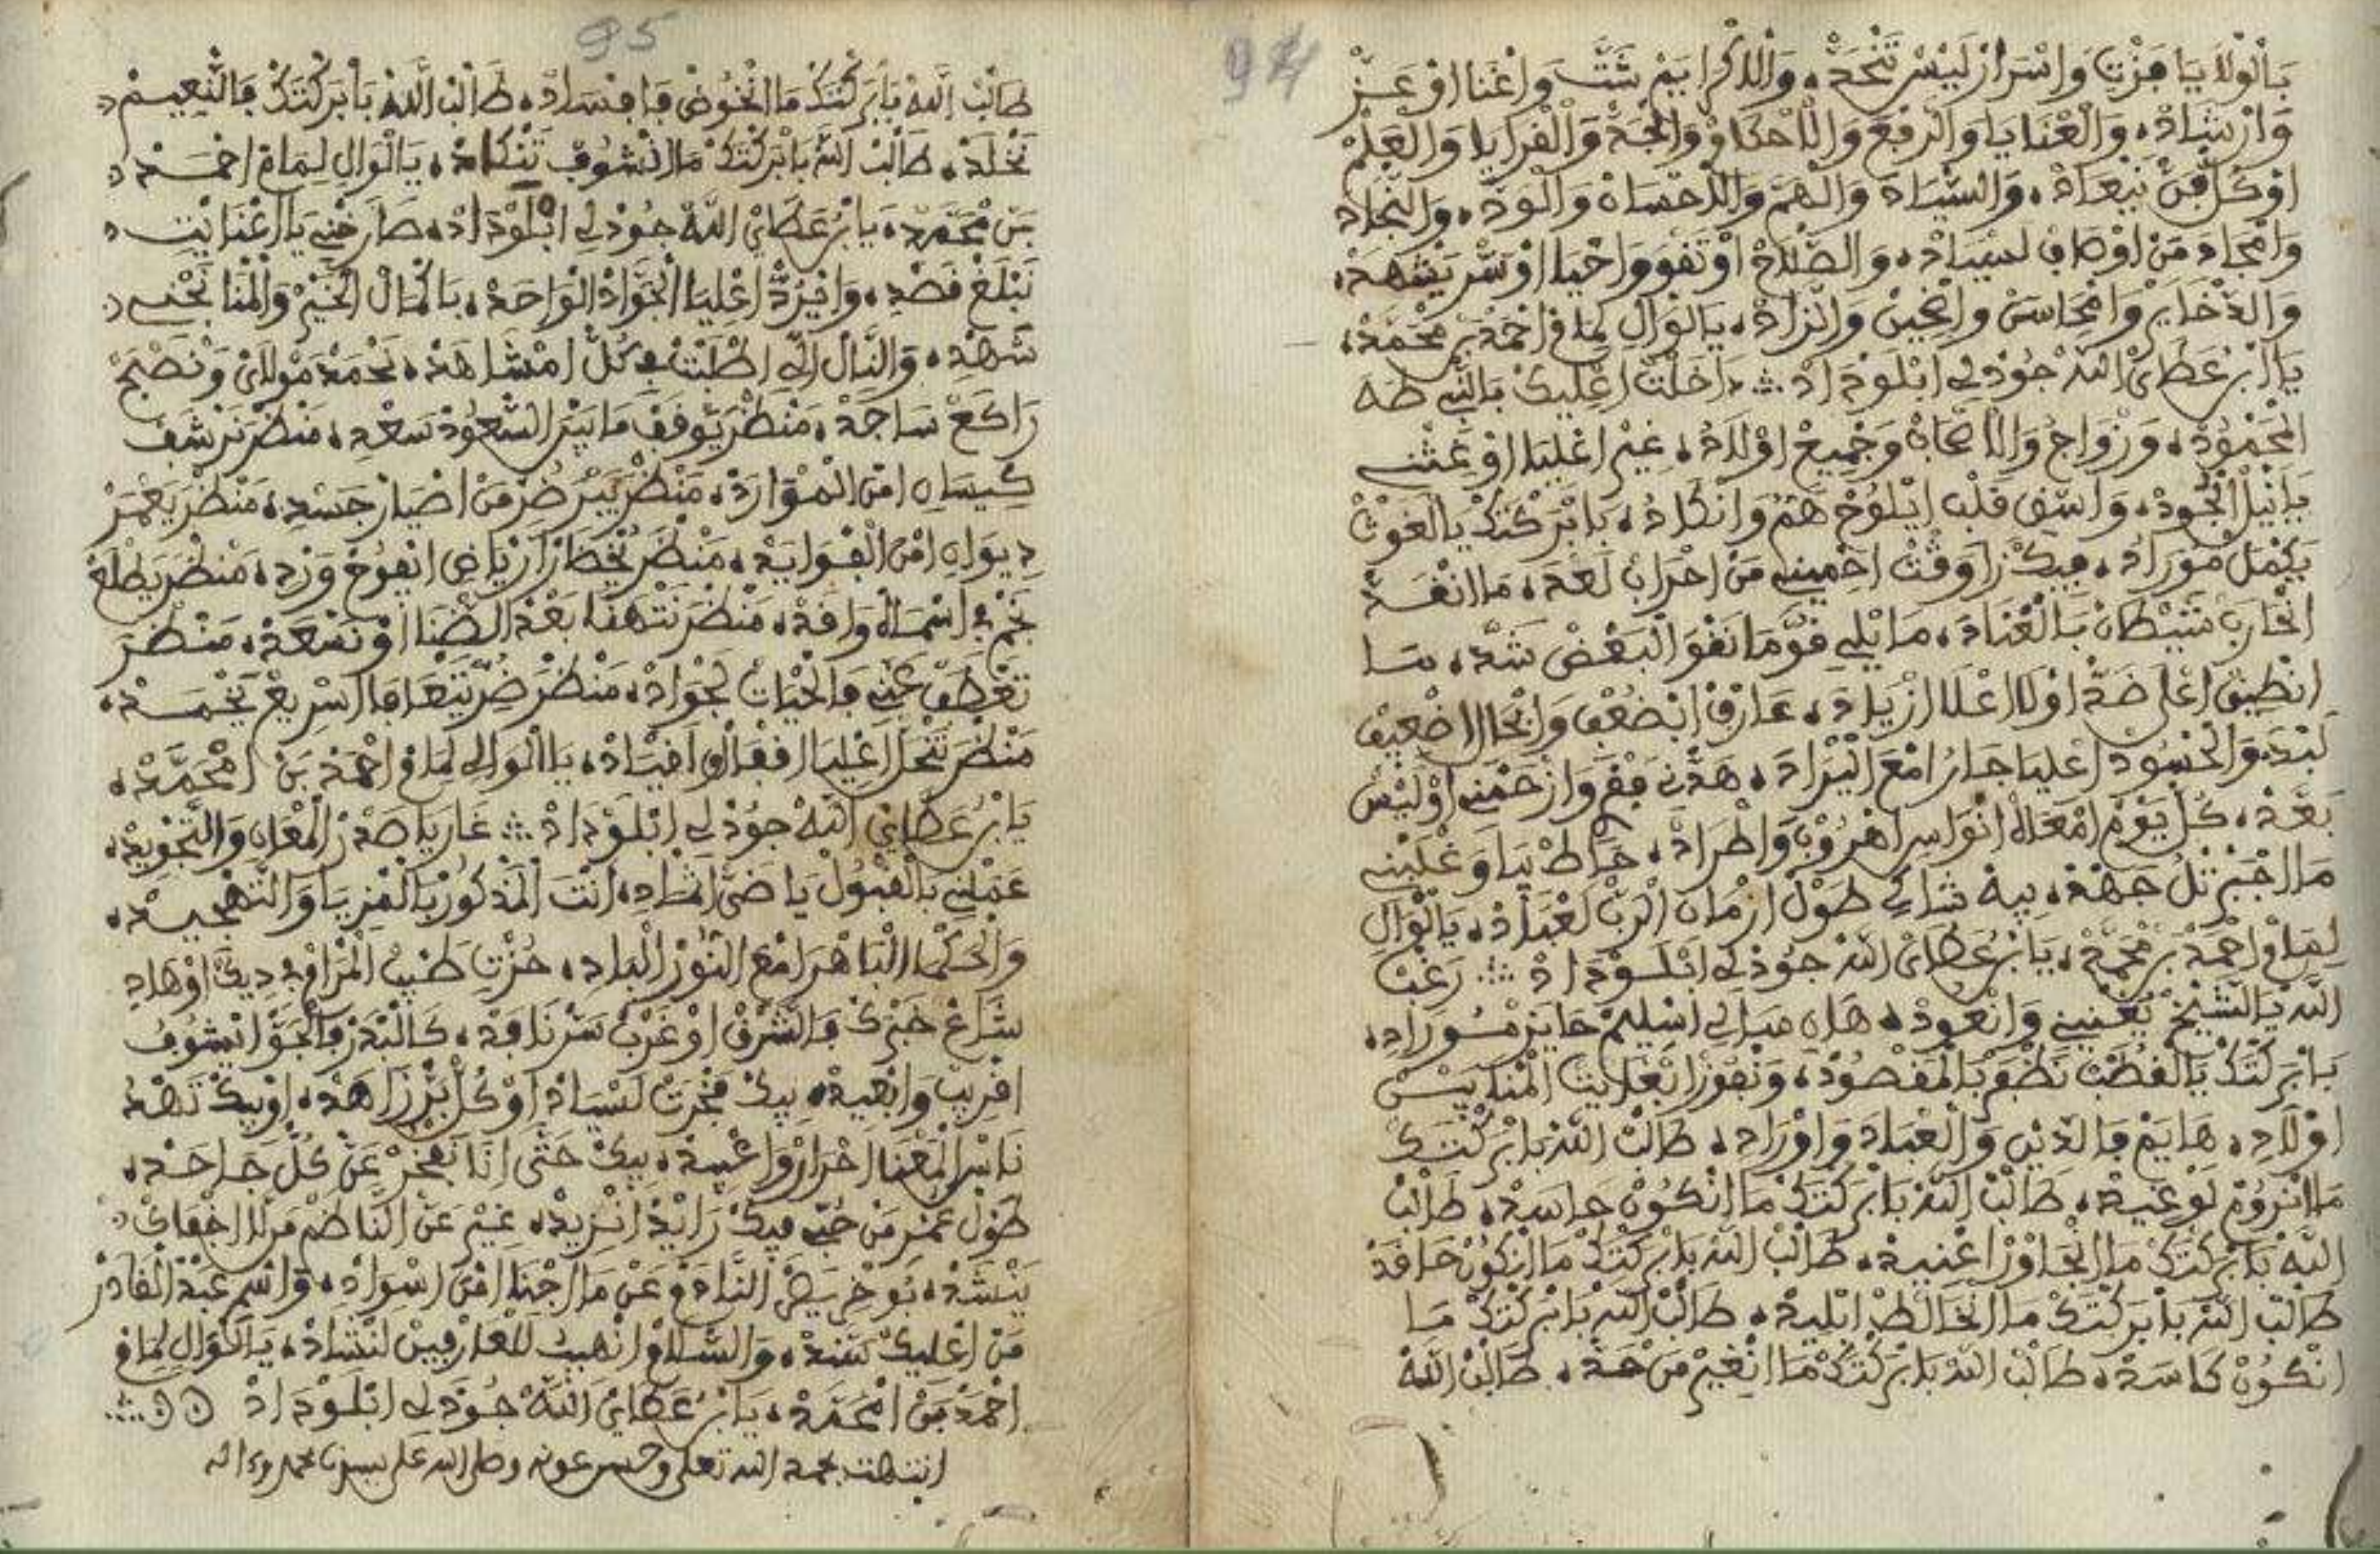 94
بَالْوْلَايَا فَزْتِ وَاسْرَارْ لَيْسْ تَتْحَدّْ، وَالذّكْرَا يَمْ شَتَّ وَاغْنَا اوْ عَزّْ
وَارْشَادْ، وَالْعْنَايَا وَالرّفْعْ وَالْاحْكَامْ وَالْجَهْ وَالْقْرَايَا وَالْعَلْمْ
اوْكُلّْ فَنّْ يَنْعَادْ، وَالسّْيَادَ وَالْهَمَّ وَالْاحْسَانْ وَالْوَدّْ، وَالنّْجَادَ
وَامْجَادَ مَنْ اوْصَافْ لَسْيَادْ، وَالصّْلَاحْ اوْ تَقْوَ وَاحْيَا اوْ سَرّْ يَشْهَدْ،
وَالذّْخَايَرْ وَامْحَاسَنْ وَالزَّادْ، يَالْوَالِ لِمَامْ احْمَدْ بَرْ مْحَمَّدْ،
يَا ابْرْ عَطَايْ اللهْ جُوذْ لِي ابْلَوْدَادْ ∴ دَاخَلْتْ اعْلِيكْ بَالنّْبِي طَهَ
الْمَحْمُودْ، وَزْوَاجُ وَالْاصْحَابْ وَجْمِيعْ اوْلَادُ، غِيرْ اعْلِيَا اوْ غِثْنِي
يَا نِيلْ الْجُودْ، وَاشْفِ قَلْبِ ايْلُوحْ هَمُّ وَانْكَادُ، بَابْرَكْتَكْ يَا الْغَوْثْ
يَكْمَلْ مَوْرَادُ، فِيكْ رَاوَقْتْ احْمِينِي مَنْ احْرَابْ لَعْدَ، مَا انْقَدّْ
انْحَارَبْ شَيْطَانْ بَالْعْنَادَ، مَا يْلِي قُوَّ مَا نَقْوَ الْبَعْضْ شَدَّ، مَا
انْطِيقْ اعْلَى ضَدّْ اوْ لَا اعْلَا ازْيَادَ، عَارْفْ ابْضُعْفِ وَانْحَالْ اضْعِيفْ
لَبْدَ، وَالْحْسُودْ اعْلِيَا جَارُ امْعَ الْيْرَادَ، هَدّْنِي فَقْرِ وَارْحَمْنِي اوْ لَيْسْ
بَعْدْ، كُلّْ يَوْمْ امْعَاهْ انْوَاسِ اهْرُوبْ وَاطْرَادْ، حَاطْ بِيَا وَغْلَبْنِي
مَا اجْبَرْتْلُ جَهْدْ، بِيهْ شَاكِي طُولْ ازْمَانْ الْرَبّْ لَعْبَادْ، يَالْوَالِ
لِمَامْ احْمَدْ بَرْ مْحَمَّدْ، يَابْرْ عَطَايْ اللهْ جُوذْ لِي ابْلَوْدَادْ ∴ رَغْبْ
اللهْ يَالشّيخْ يْعْنِينِي وَانْعُودْ، هَانِ مَبَالِي اسْلِيمْ حَايَزْ مُورَادِ،
بَابْرَكْتَكْ يَالْقُطْبْ نَظْفَرْ بَالْمَقْصُودْ، وَنْفُوزْ ابْغَايَتْ الْمْنَا بَيْنْ
اوْلَادِ، هَايَمْ فَالدّينْ وَالْعْبَادَ وَاوْرَادِ، طَالَبْ اللهْ بَابْرَكْتَكْ
مَا انْرُومْ لَوْغِيدْ، طَالَبْ اللهْ بَابْرَكْتَكْ مَا انْكُونْ حَاسَدْ، طَالَبْ
اللهْ بَابْرَكْتَكْ مَا انْجَاوَرْ اعْنِيدْ، طَالَبْ اللهْ بَابْرَكْتَكْ مَا انْكُونْ حَاقَدْ
طَالَبْ اللهْ بَابْرَكْتَكْ مَا انْخَالَطْ ابْلِيدْ، طَالَبْ اللهْ بَابْرَكْتَكْ مَا
انْكُونْ كَاسَدْ، طَالَبْ اللهْ بَابْرَكْتَكْ مَا انْغِيرْ مَنْ حَدْ، طَالَبْ اللهْ
95
طَالَبْ اللهْ بَابْرَكْتَكْ مَا انْخُوضْ فَافْسَادْ، طَالَبْ اللهْ بَابْرَكْتَكْ فَالنّْعِيمْ
نَخْلَدْ، طَالَبْ اللهْ بَابْرَكْتَكْ مَا انْشُوفْ تَنْكَادْ، يَالْوَالِ لِمَامْ احْمَدْ
بَنْ مْحَمَّدْ، يَابْرْ عَطَايْ اللهْ جُوذْ لِي ابْلَوْدَادْ، صَارَخْنِي يَا الْغْنَايْتِ
نَبْلَغْ قَصْدِ، وَانْرُدّْ اعْلِيَا الْجَوَادْ الْوَاحَدْ، بَاكْمَالْ الْخَيْرْ وَالْمْنَا نَجْنِي
شَهْدِ، وَالنَّالْ الّي اطْلَبْتْ فِي كُلّْ امْشَاهَدْ، نَحْمَدْ مَوْلَايْ وَنْصَبْحْ
رَاكَعْ سَاجَدْ، مَنْظَرْ يْوَقَّفْ مَا بَيْنْ السّْعُودْ سَعْدِ، مَنْظَرْ نَرْشَفْ
كِيسَانِ امْنْ الْمْوَارَدْ، مَنْظَرْ يَبْرَ ضُرّْ مَنْ اضْيَارْ جَسْدِ، مَنْظَرْ يَعْمَرْ
دِيوَانِ امْنْ الْفْوَايَدْ، مَنْظَرْ تُخْطَارْ ارْيَاضِي ايْفُوحْ وَرْدِ، مَنْظَرْ يَطْلَعْ
نَجْمِ فِي اسْمَاهْ وَاقَدْ، مَنْظَرْ نَتْهَنَّا بَعْدْ الضّْنَا اوْ نَسْعَدْ، مَنْظَرْ
تَعْطَفْ عَنِّي فَالْحْيَاتْ لَجْوَادْ، مَنْظَرْ ضُرّْ يَتْعَافَا اسْرِيعْ يَخْمَدْ،
مَنْظَرْ تَنْحَلّْ اعْلِيَا اقْفَالْ وَاقْيَادْ، يَا الْوَالِي لِمَامْ احْمَدْ بَنْ امْحَمَّدْ،
يَابْرُ عَطَايْ اللهْ جُوذْ لِي ابْلَوْدَادْ ∴ غَارْ يَا صَدْرْ الْمْعَانِ وَالتَّجْوِيدْ،
عَمَّلْنِي بَالْقْبُولْ يَا ضَيّْ اثْمَادِ، انْتَ الْمَذْكُورْ بَالْمْزِيَا وَالتَّمْجِيدْ،
وَالْحَكْمَا الْبَاهْرَ امْعَ النُّورْ الْبَادِ، حُزْتِ طَبّْ الْمْرَامْ فِي دِينْ اوْهَادِ
شَاعْ خَبْرَكْ فَالشَّرْقْ اوْ غَرْبْ سَرّْ نَافَدْ، كَالْبْدَرْ فَالْجَوّْ انْشُوفْ
اقْرِيبْ وَابْعِيدْ، بِيكْ فَخْرَتْ لَسْيَادْ اوْكُلّْ بَرّْ زَاهَدْ، اوْبِيكْ تَهْدَ
نَاسْ الْمَعْنَا احْرَارْ وَاعْبِيدْ، بِيكْ حَتَّى انَا نَفْخَرْ عَنْ كُلّْ جَاحَدْ،
طُولْ عَمْرِ مَنْ حُبِّي فِيكْ زَايَدْ انْزِيدْ، غِيرْ عَنْ النَّاظَمْ مَنْ لَا اخْفَاكْ
يَنْشَدْ، بُوخْرِيصْ النَّادَمْ عَنْ مَا اجْنَا امْنْ اسْوَادِ، وَاسْمِ عَبْدْ الْقَادَرْ
مَنْ اعْلِيكْ يَسْنَدْ، وَالسّْلَامْ انْهِيبُ لَلْعَارْفِينْ لَنْشَادْ، يَا الْوَالِ لِمَامْ
احْمَدْ بَنْ امْحَمَّدْ، يَابْرُ عَطَايْ اللهْ جُوذْ لِي ابْلَوْدَادْ ∴
انتهت بحمد الله تعلى وحسن عونه وصلى الله على سيدنا محمد وءاله